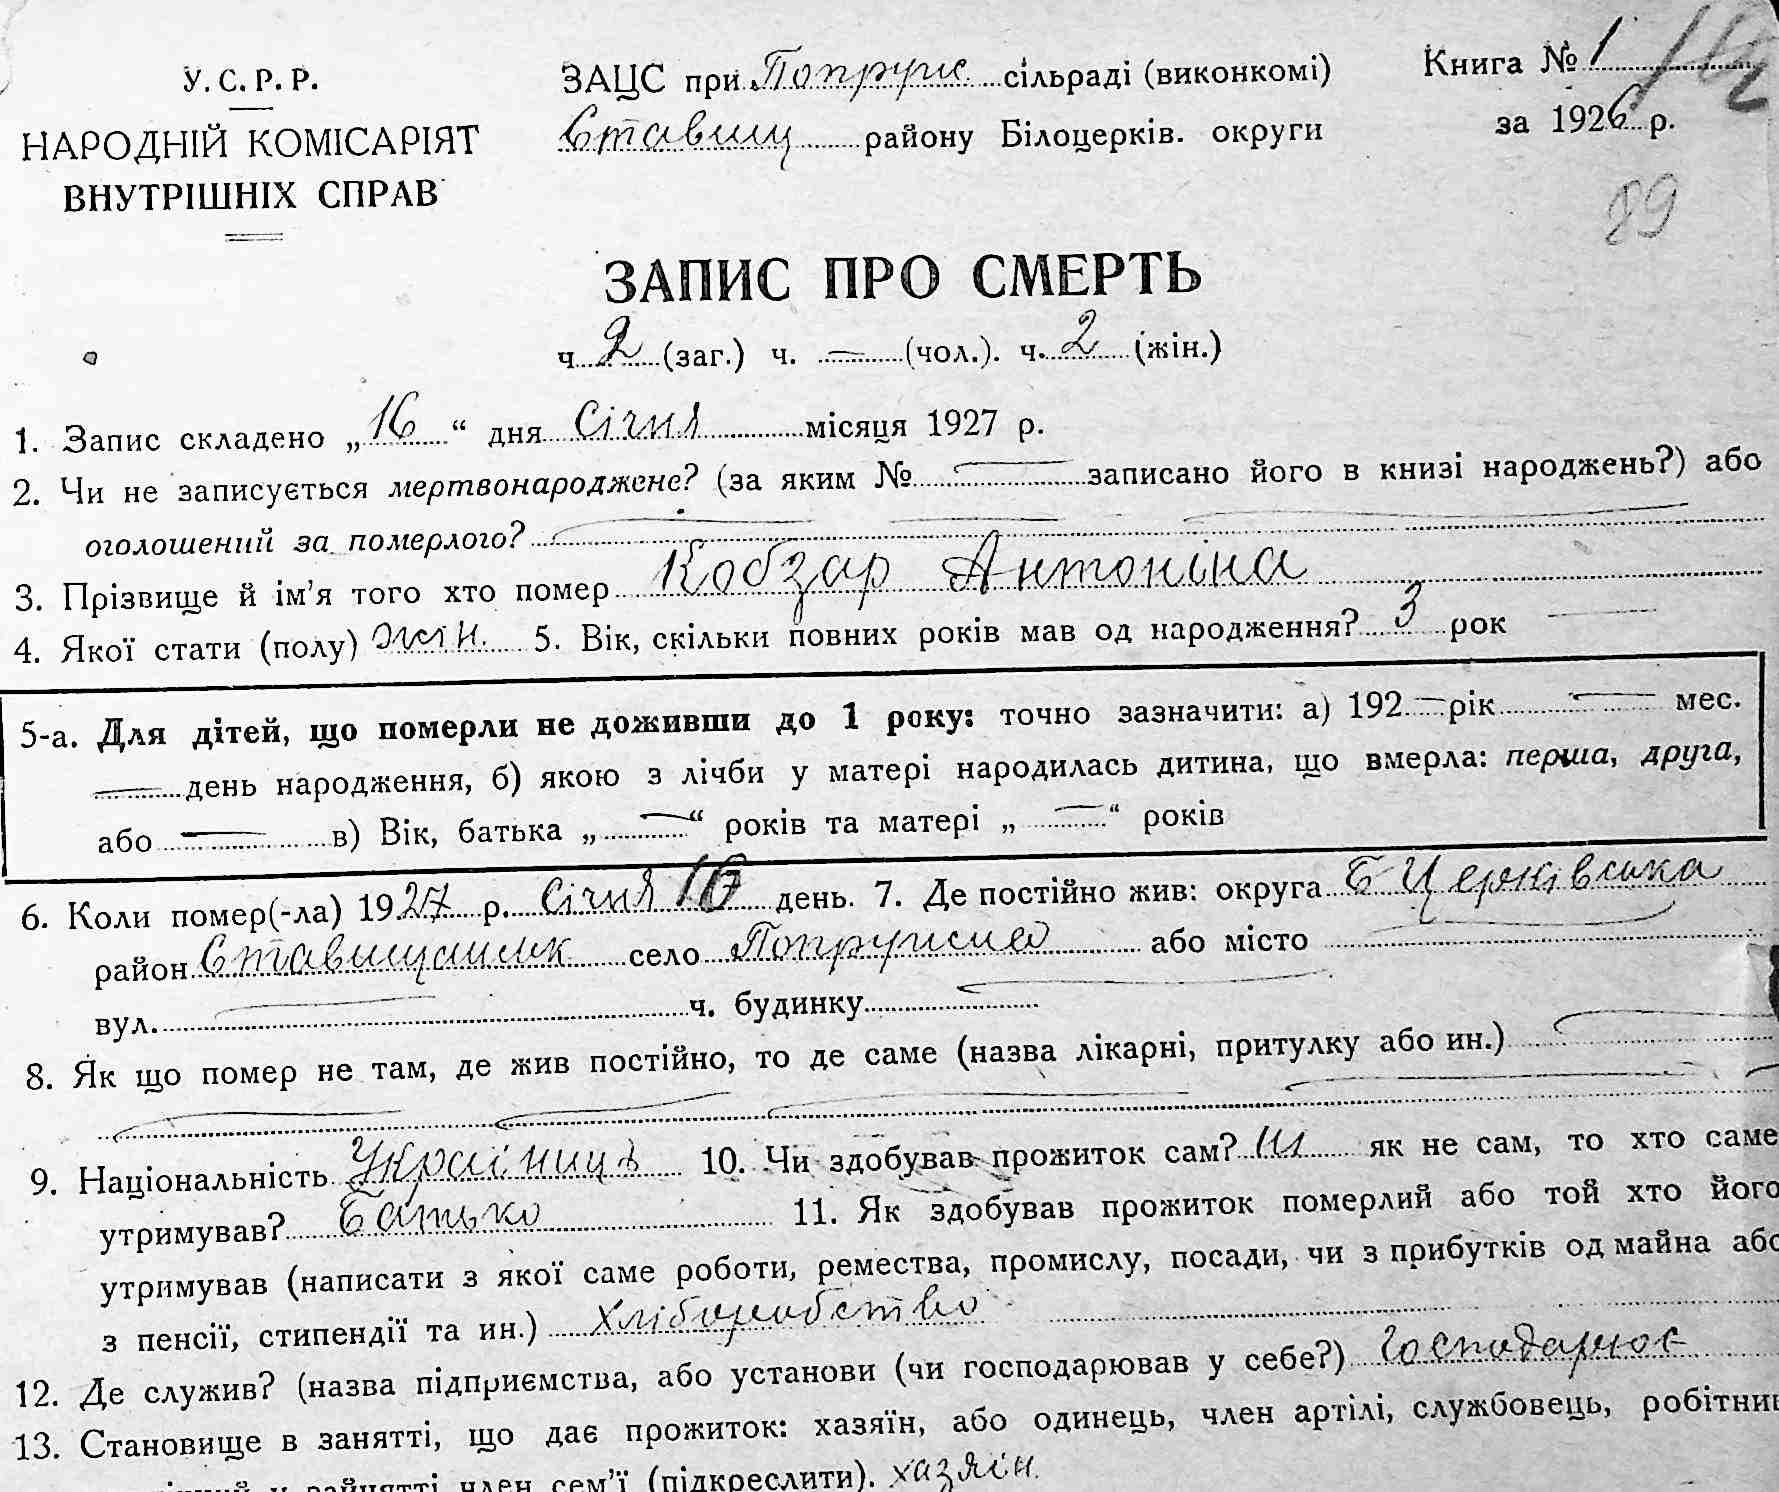 У.С.Р.Р.
НАРОДНІЙ КОМІСАРІЯТ
ВНУТРІШНІХ СПРАВ
ЗАЦС при Попруж. сільраді (виконкомі)
Ставищ району Білоцерків. округи
Книга № 1
за 1926 р.
89
ЗАПИС ПРО СМЕРТЬ
ч. 2 (заг.) ч. — (чол.). ч. 2 (жін.)
1. Запис складено „16“ дня Січня місяця 1927 р.
2. Чи не записується мертвонароджене? (за яким № — записано його в книзі народжень?) або
оголошений за померлого? —
3. Прізвище й ім’я того хто помер Кобзар Антоніна
4. Якої стати (полу) жін. 5. Вік, скільки повних років мав од народження? 3 рок —
5-а. Для дітей, що померли не доживши до 1 року: точно зазначити: а) 192 — рік — мес.
— день народження, б) якою з лічби у матері народилась дитина, що вмерла: перша, друга,
або — в) Вік, батька „—“ років та матері „—“ років
6. Коли помер(-ла) 1927 р. Січня 16 день. 7. Де постійно жив: округа Б Церківська
район село або місто —
вул. — ч. будинку —
8. Як що помер не там, де жив постійно, то де саме (назва лікарні, притулку або ин.) —
9. Національність 10. Чи здобував прожиток сам? ні як не сам, то хто саме
утримував? Батько 11. Як здобував прожиток померлий або той хто його
утримував (написати з якої саме роботи, ремества, промислу, посади, чи з прибутків од майна або
з пенсії, стипендії та ин.) хліборобство
12. Де служив? (назва підприємства, або установи (чи господарював у себе?)
13. Становище в занятті, що дає прожиток: хазяїн, або одинець, член артілі, службовець, робітни
член сем’ї (підкреслити). хазяїн.